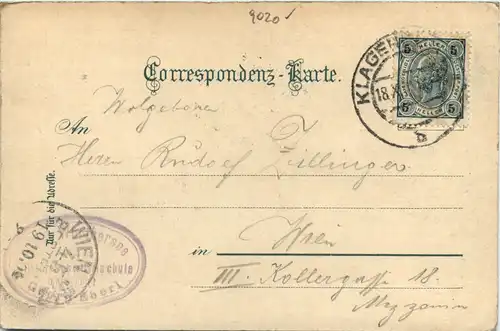 9020
KLAGEN
18.X
b
5 HELLER 5
5 HELLER 5
Correspondenz-Karte.
Wolgeboren
An
Herrn Rudolf Zillinger
Nur für die Adresse.
in Wien
III. Kollergasse 18.
Mezzanin
WIEN
19.10